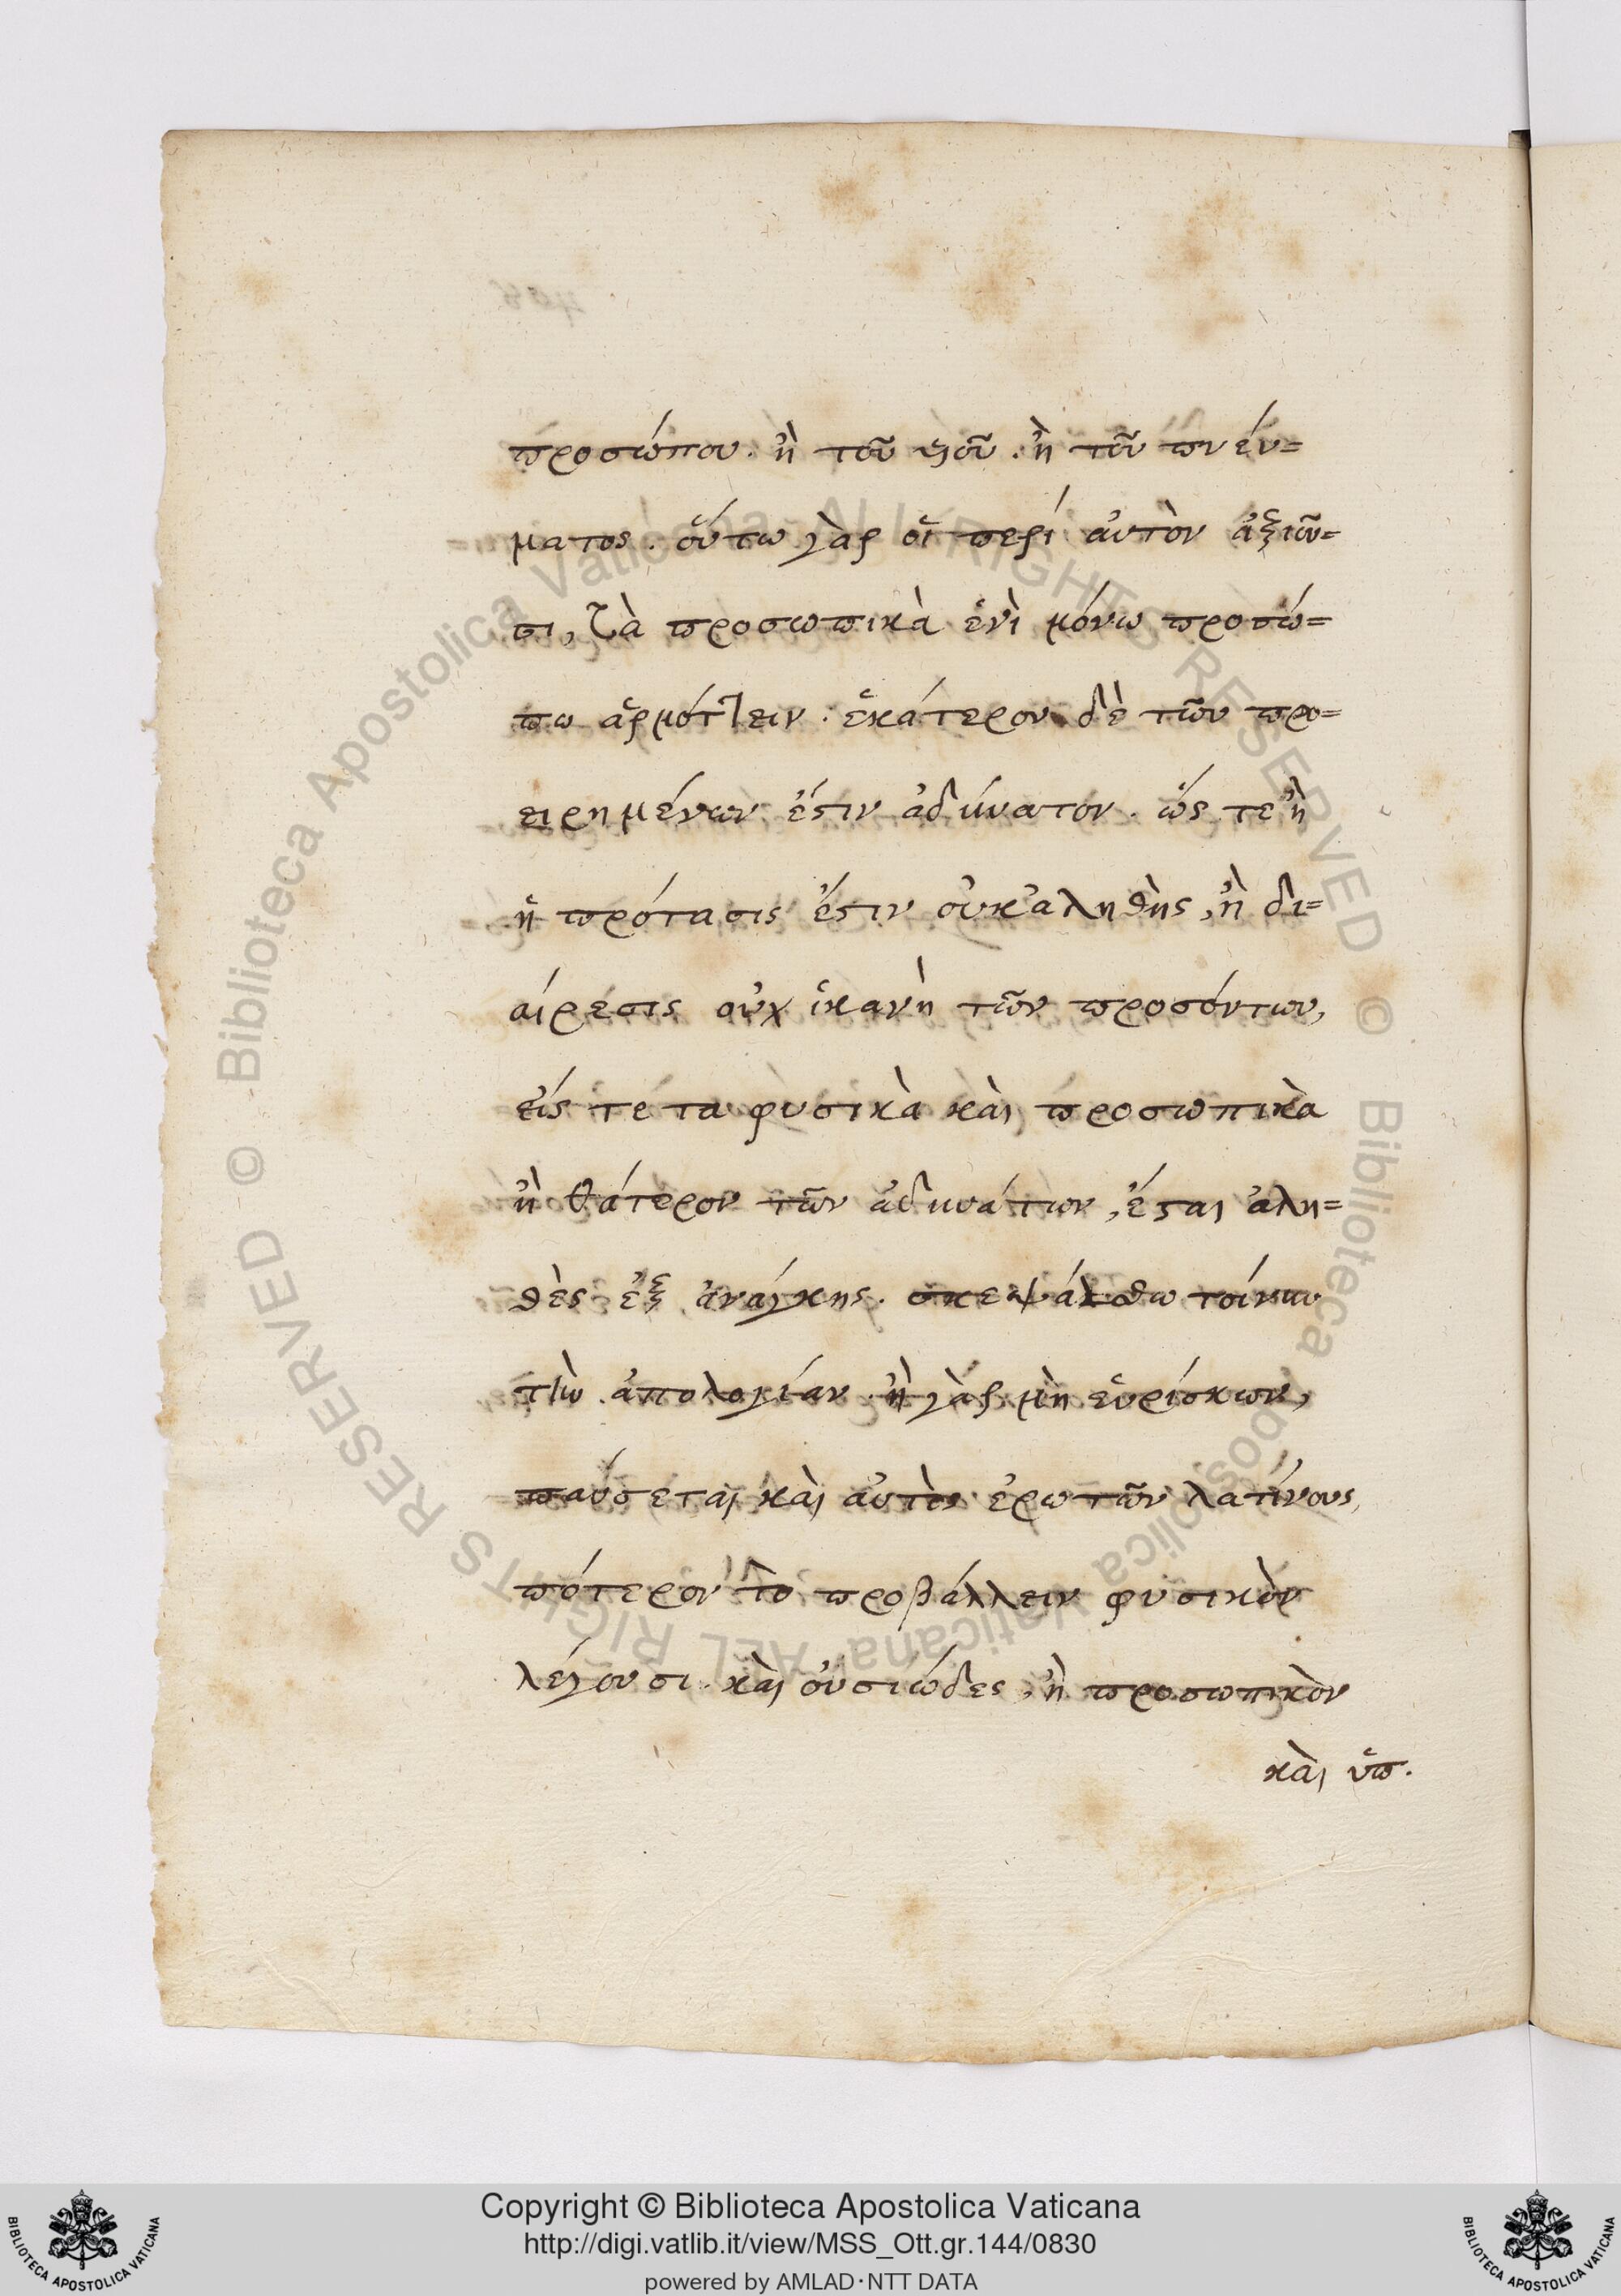 προσώπου. ἢ τοῦ υἱοῦ. ἢ τοῦ πνεύ=
ματος. οὕτω γὰρ οἱ περί αὐτὸν ἀξιοῦ=
σι, τὰ προσωπικὰ ἑνὶ μόνω προσώ=
πω ἁρμόττειν. ἑκάτερον δὲ τῶν προ=
ειρημένων ἐστιν ἀδύνατον. ὥς τε ἢ
ἡ πρότασις ἔστιν οὐκ ἀληθὴς, ἢ δι=
αίρεσις οὐχ ἱκανὴ τῶν προσόντων,
εἴς τε τα φυσικὰ καὶ προσωπικὰ
ἢ θάτερον τῶν ἀδυνάτων, ἔσται ἀλη=
θὲς ἐξ ἀνάγκης. σκεψάσθω τοίνυν
τὴν ἀπολογίαν. ἢ γὰρ μὴ εὑρίσκων,
παύσεται καὶ αὐτὸς ἐρωτῶν λατίνους,
πότερον τὸ προβάλλειν φυσικὸν
λέγουσι καὶ οὐσιώδες, ἢ προσωπικὸν
καὶ ὑπ.
Copyright © Biblioteca Apostolica Vaticana
http://digi.vatlib.it/view/MSS_Ott.gr.144/0830
powered by AMLAD·NTT DATA
BIBLIOTECA APOSTOLICA VATICANA
BIBLIOTECA APOSTOLICA VATICANA